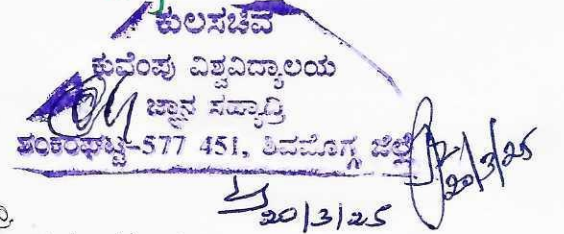 ಕುಲಸಚಿವ
ಕುವೆಂಪು ವಿಶ್ವವಿದ್ಯಾಲಯ
ಜ್ಞಾನ ಸಹ್ಯಾದ್ರಿ
ಶಂಕರಘಟ್ಟ-577 451, ಶಿವಮೊಗ್ಗ ಜಿಲ್ಲೆ
20/3/25
20/3/25